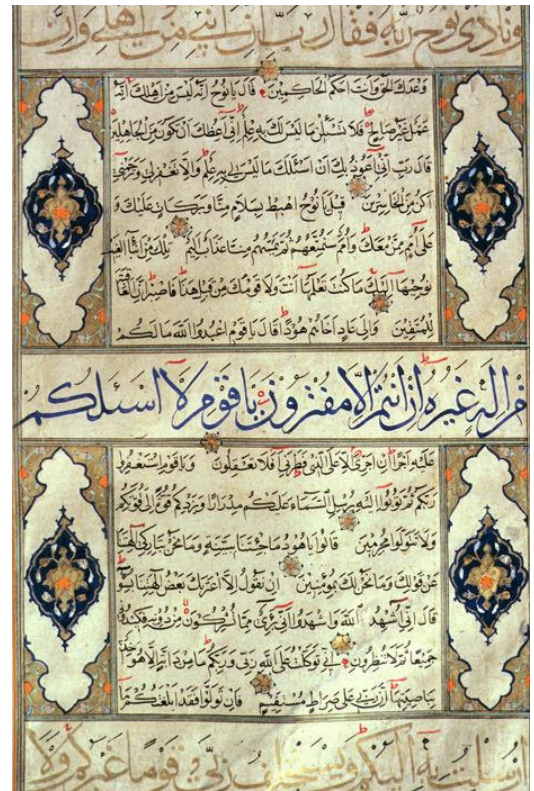 ونادى نوح ربه فقال رب إن ابني من أهلي وإن
وعدك الحق وأنت أحكم الحاكمين قال يا نوح إنه ليس من أهلك إنه
عمل غير صالح فلا تسئلن ما ليس لك به علم إني أعظك أن تكون من الجاهلين
قال رب إني أعوذ بك أن أسئلك ما ليس لي به علم وإلا تغفر لي وترحمني
أكن من الخاسرين قيل يا نوح اهبط بسلام منا وبركات عليك و
على أمم ممن معك وأمم سنمتعهم ثم يمسهم منا عذاب أليم تلك من أنباء الغيب
نوحيها إليك ما كنت تعلمها أنت ولا قومك من قبل هذا فاصبر إن العاقبة
للمتقين وإلى عاد أخاهم هودا قال يا قوم اعبدوا الله ما لكم
من إله غيره إن أنتم إلا مفترون يا قوم لا أسئلكم
عليه أجرا إن أجري إلا على الذي فطرني أفلا تعقلون ويا قوم استغفروا
ربكم ثم توبوا إليه يرسل السماء عليكم مدرارا ويزدكم قوة إلى قوتكم
ولا تتولوا مجرمين قالوا يا هود ما جئتنا ببينة وما نحن بتاركي آلهتنا
عن قولك وما نحن لك بمؤمنين إن نقول إلا اعتراك بعض آلهتنا بسوء
قال إني أشهد الله واشهدوا أني بريء مما تشركون من دونه فكيدوني
جميعا ثم لا تنظرون إني توكلت على الله ربي وربكم ما من دابة إلا هو آخذ
بناصيتها إن ربي على صراط مستقيم فإن تولوا فقد أبلغتكم ما
أرسلت به إليكم ويستخلف ربي قوما غيركم ولا